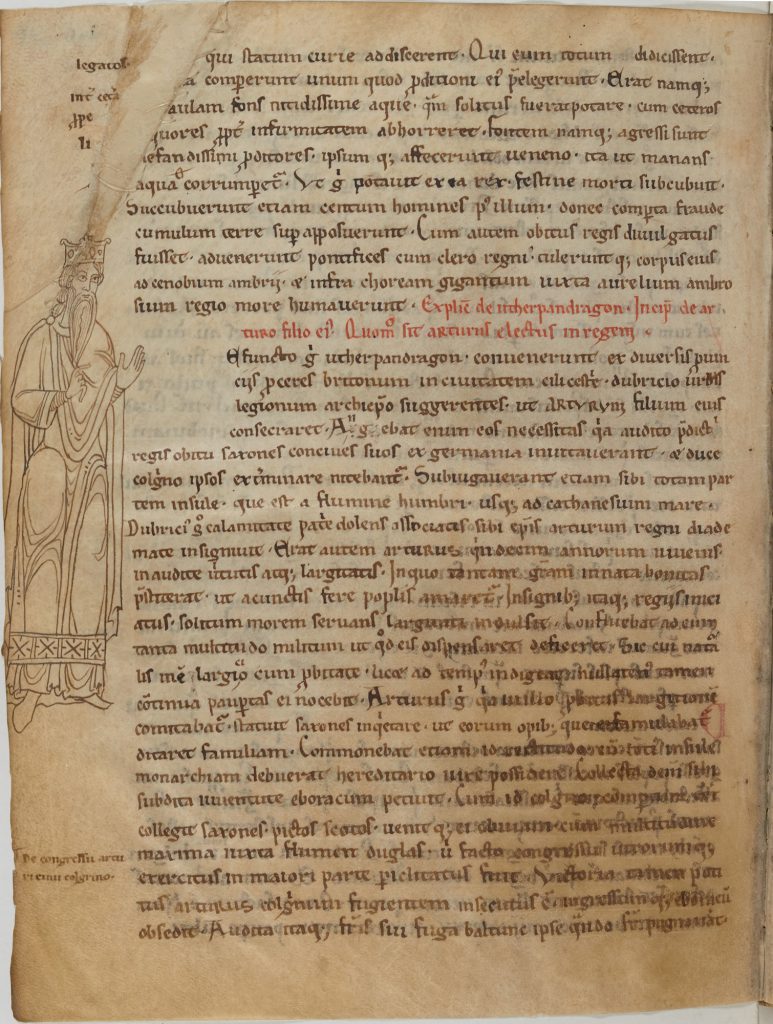 legatos qui statum curie addiscerent · Qui eum totum didicissent ·
comperunt unum quod p̄ditioni ei᾽ p̄elegerunt · Erat namq;
aulam fons nitidissime aque · quā solitus fuerat potare · cum ceteros
quores ꝓpt̄ infirmitatem abhorreret · fontem namq; agressi sunt
nefandissimi ꝓditores · ipsum q; affecerunt ueneno · ita ut manans
aqua corrumperet᷑ · Vt g̊ potauit ex ea rex · festine morti subcubuit ·
Succubuerunt etiam centum homines p᾽ illum · donec comperta fraude
cumulum terre sup apposuerunt · Cum autem obitus regis diuulgatus
fuisset · aduenerunt pontifices cum clero regni · tulerunt q; corpus eius
ad cenobium ambrii · & infra choream gigantum iuxta aurelium ambro
sium regio more humauerunt · Explic̄ de utherpandragon · Incip̄ de ar
turo filio ei᾽ · Quom̊ sit arturus electus in regem ·
Efuncto g̊ utherpandragon · conuenerunt ex diuersis ꝓuin
ciis ꝓceres britonum in ciuitatem cilicestr̄ · dubricio urbis
legionum archiep̄o suggerentes · ut ARTURUM filium eius
consecraret · Aug̊ebat enim eos necessitas · q̄a audito p̄dicti
regis obitu saxones conciues suos ex germania inuitauerant · & duce
colg̊no ipsos ext̄minare nitebant᷑ · Subiugauerant etiam sibi totam par
tem insule · que est a flumine humbri · usq; ad cathanesium mare ·
Dubrici᾽ g̊ calamitate pat̄e dolens associatis sibi ep̄is arturum regni diade
mate insigniuit · Erat autem arturus quindecim annorum iuuenis ·
inaudite uirtutis atq; largitatis · In quo tantam gr̄am innata bonitas
p̄stiterat · ut a cunctis fere popl̄is amaret᷑ · Insignib; itaq; regiis inici
atus · solitum morem seruans largitati indulsit · Confluebat ad eum
tanta multitudo militum ut qd̊ eis dispensaret deficeret · Sic cui natā
lis inē largitio cum ꝓbitate · licet ad temp᾽ indigeat nullaten᾽ tamen
cōtinua paupertas ei nocebit · Arturus g̊ q̄a in illo ꝓbitas largitione
comitabat᷑ · statuit saxones inq̇etare · ut eorum opib; que ei famulabat᷑
ditaret familiam · Commonebat etiam id rectitudo cū toti᾽ insule
monarchiam debuerat hereditario iure possidere · Collecta deni sibi
subdita iuuentute eboracum petiuit · Cumq; id colg̊no compertum
collegit saxones · pictos scotos · uenit q; ei obuiam cum multitudine
maxima iuxta flumen duglas · ū facto congressu utrorumq;
exercitus in maiori parte periclitatus fuit · Victoria tamen poti
tus arturus colg̊num fugientem insecutus ē · ingressum
obsedit · Audita itaq; fr̄is sui fuga baldulf᾽ ipse
De congressu artu
ri cum colgrino ·